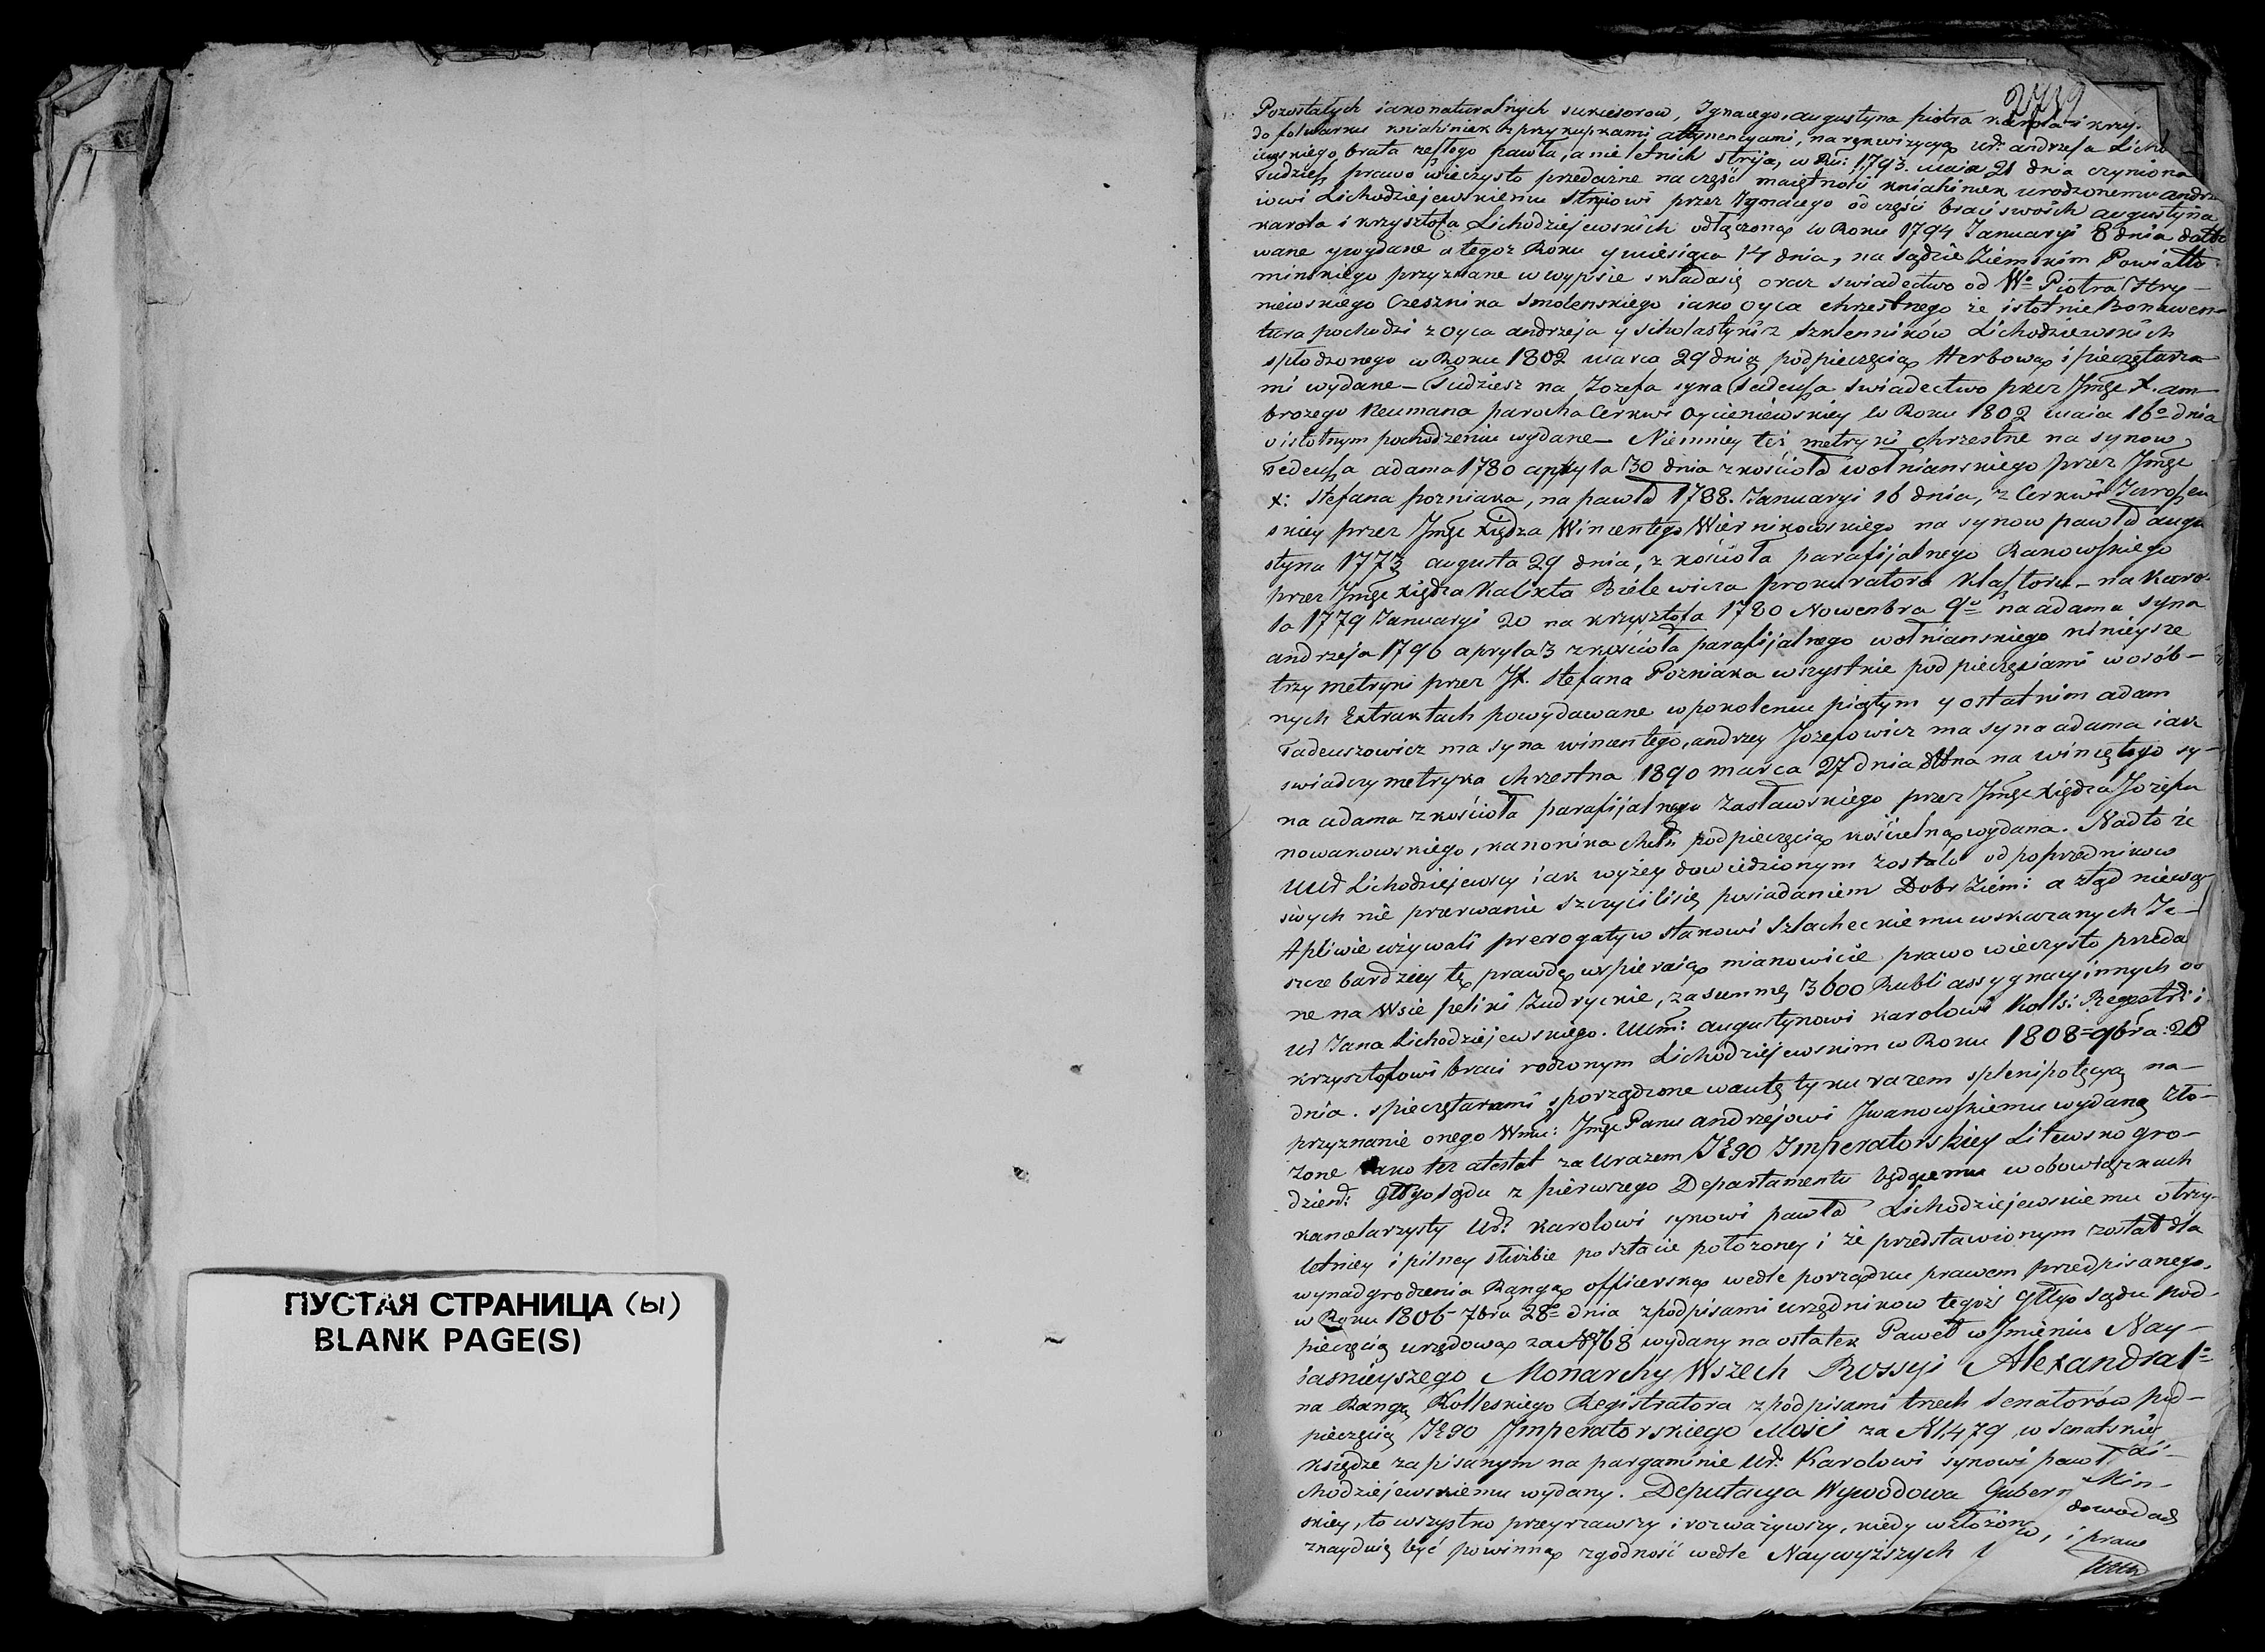 ПУСТАЯ СТРАНИЦА (ы)
BLANK PAGE(S)
Pozostałych iako naturalnych sukcesorow, Ignacego, augustyna piotra karola i krzy-
do folwarku kniahiniek z przykupkami attynencyami, na rekwizycyą ur: andrzeja Licho-
iewskiego brata zeszłego pawła, a nie letnich stryja, w Ru: 1793. maja 21 dnia czyniona
Tudzież prawo wieczysto przedażne na część maiętności kniahinek urodzonemu andrze
iowi Lichodziejewskiemu Stryiowi przez Ignacego od części braci swoich augustyna
karola i krzysztofa Lichodziejewskich odłączoną w Roku 1794 Januaryi 8 dnia datto
wane y wydane a tegoż Roku y miesiąca 14 dnia, na sądzie Ziemskim Powiatu
minskiego przyznane w wypisie składasię oraz swiadectwo od Wo Piotra
niewskiego Czesznika Smolenskiego iako oyca chrzestnego że istotnie Bonawen-
tura pochodzi z oyca andrzeja y scholastyki z Szklenników Lichodziewskich
spłodzonego w Roku 1802 marca 29 dnia pod pieczęcią Herbową i pieczętarza-
mi wydane – Tudziesz na Jozefa syna Tadeusza swiadectwo przez Jmę X. am-
brożego Neumana parocha Cerkwi Oycieniewskiey w Roku 1802 maia 16o dnia
o istotnym pochodzeniu wydane – Niemniey też metryki chrzestne na synow
Tedeusza adama 1780 apryla 30 dnia z kościoła wołnianskiego przez Jmę
X: Stefana pozniaka, na pawła 1788. Januaryi 16 dnia, z Cerkwi
skiey przez Jmę Xiędza Wincentego Wiernikowskiego na synow pawła augu
styna 1773 augusta 29 dnia, z kościoła parafijalnego Rakowskiego
przez Jmę xiędza Kalixta Bielewicza prokuratora Klasztoru – na Karo-
la 1779 Januaryi 20 na krzysztofa 1780 Nowenbra 9o na adama syna
andrzeja 1796 apryla 3 z kościoła parafijalnego wołnianskiego ninieysze
trzy metryki przez JX. Stefana Pozniaka wszystkie pod pieczęciami w osób-
nych Extraktach powydawane w pokoleniu piątym y ostatnim adam
Tadeuszowicz ma syna wincentego, andrzey Jozefowicz ma syna adama iak
swiadczy metryka chrzestna 1810 marca 27 dnia na wincętego sy-
na adama z kościoła parafijalnego Zasławskiego przez Jmę Xiędza Jozefa
nowakowskiego, kanonika pod pieczęcią kościelną wydana. Nadto że
UUr Lichodziejewscy iak wyżey dowiedzionym zostało od poprzednikow
swych nie przerwanie szczycilisię posiadaniem Dobr Ziem: a ztąd niewą-
tpliwie używali prerogatyw stanowi Szlacheckiemu wskazanych Je-
szcze bardziey tę prawdę wspieraią mianowicie prawo wieczysto przeda
ne na Wsie peliki Zudryckie, za summę 3600 Rubli assygnacyinnych od
Ur Jana Lichodziejewskiego. UUm: augustynowi karolowi Kolls: Regestr: i
krzysztofowi braci rodzonym Lichodziejewskim w Roku 1808 = 9bra: 28
dnia. spieczętarami sporządzone wautętyku razem splenipotęcyą na-
przyznanie onego Wmu: Jmę Panu andrzejowi Iwanowskiemu wydaną zło-
żone iako też atestat za Ukazem Jego Imperatorskiey Litewsko gro-
dzień: Głłgo Sądu z pierwszego Departamentu będącemu w obowiązkach
kancelarzysty Ur: karolowi synowi pawła Lichodziejewskiemu o trzy-
letniey i pilney służbie po sztacie położoney i że przedstawionym został dla
wynadgrodzenia Rangą officerską wedle porządku prawem przedpisanego,
w Roku 1806 7bra 28o dnia z podpisami urzędnikow tegoż Głłgo sądu pod-
pieczęcią urzędową za N 768 wydany na ostatek Patent w Jmieniu Nay-
iasnieyszego Monarchy Wszech Rossyi Alexandra 1o
na Rangę Kolleskiego Registratora z podpisami trzech Senatorów pod-
pieczęcią Jego Imperatorskiego Mości za N 1,479 w Senatskie
księdze zapisanym na pargaminie Ur. Karolowi synowi pawła Li-
chodziejewskiemu wydany. Deputacya Wywodowa Gubern Min-
skiey, to wszystko przeyrzawszy i rozważywszy, kiedy w złożon dowodach
znayduię być powinną zgodność wedle Naywyższych i praw